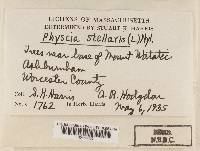 LICHENS OF MASSACHUSETTS
DETERMINED BY STUART K. HARRIS
Physcia stellaris (L.) Nyl.
Trees near base of Mount Watatic
Ashburnham
Worcester County
Col. S.K. Harris A.R. Hodgdon
No. 1762 in Herb. Harris May 6, 1935